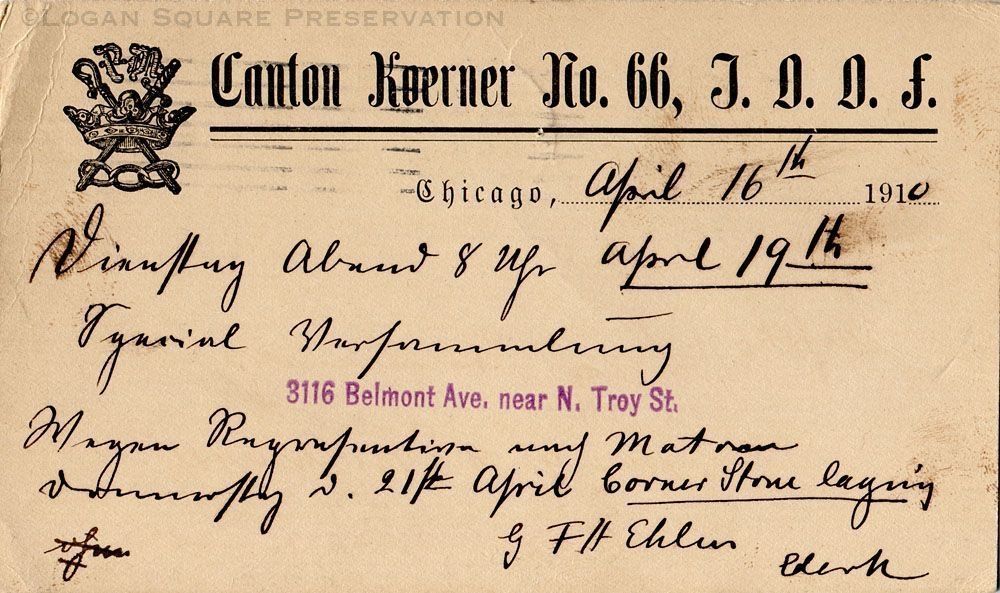 ©Logan Square Preservation
P M
Canton Koerner No. 66, I. O. O. F.
Chicago, April 16th 1910
Dienstag Abend 8 Uhr April 19th
Special Versammlung
3116 Belmont Ave. near N. Troy St.
Wegen nach
Donnerstag d. 21st April Corner Stone laying
G F H Ehlers
Clerk